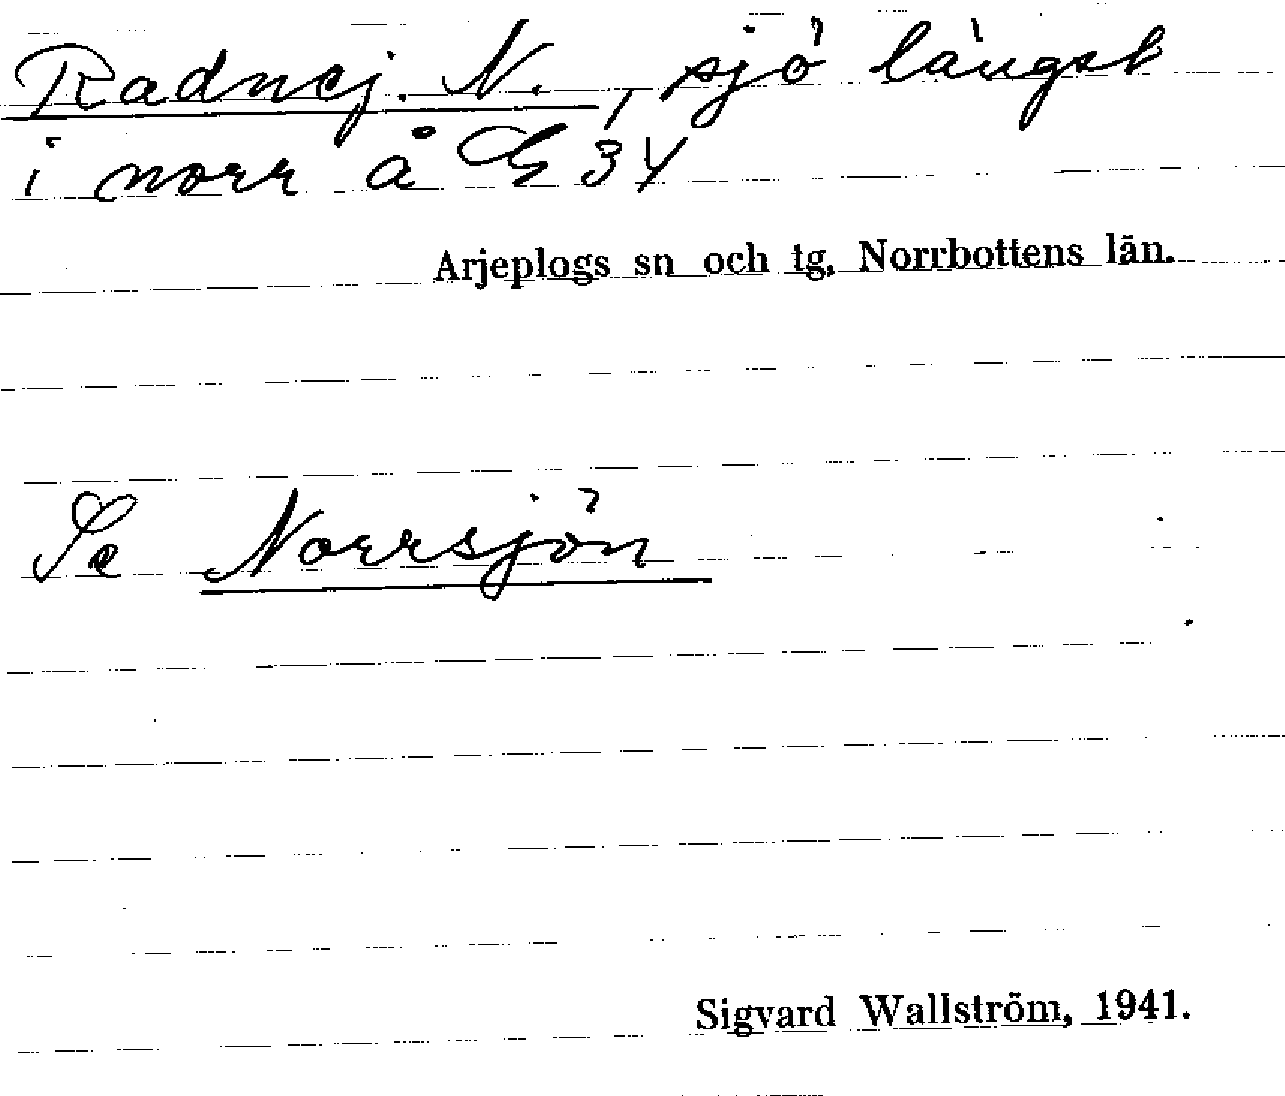 Radnej. N., sjö längst
i norr å G 34
Arjeplogs sn och tg, Norrbottens län.
Se Norrsjön
Sigvard Wallström, 1941.